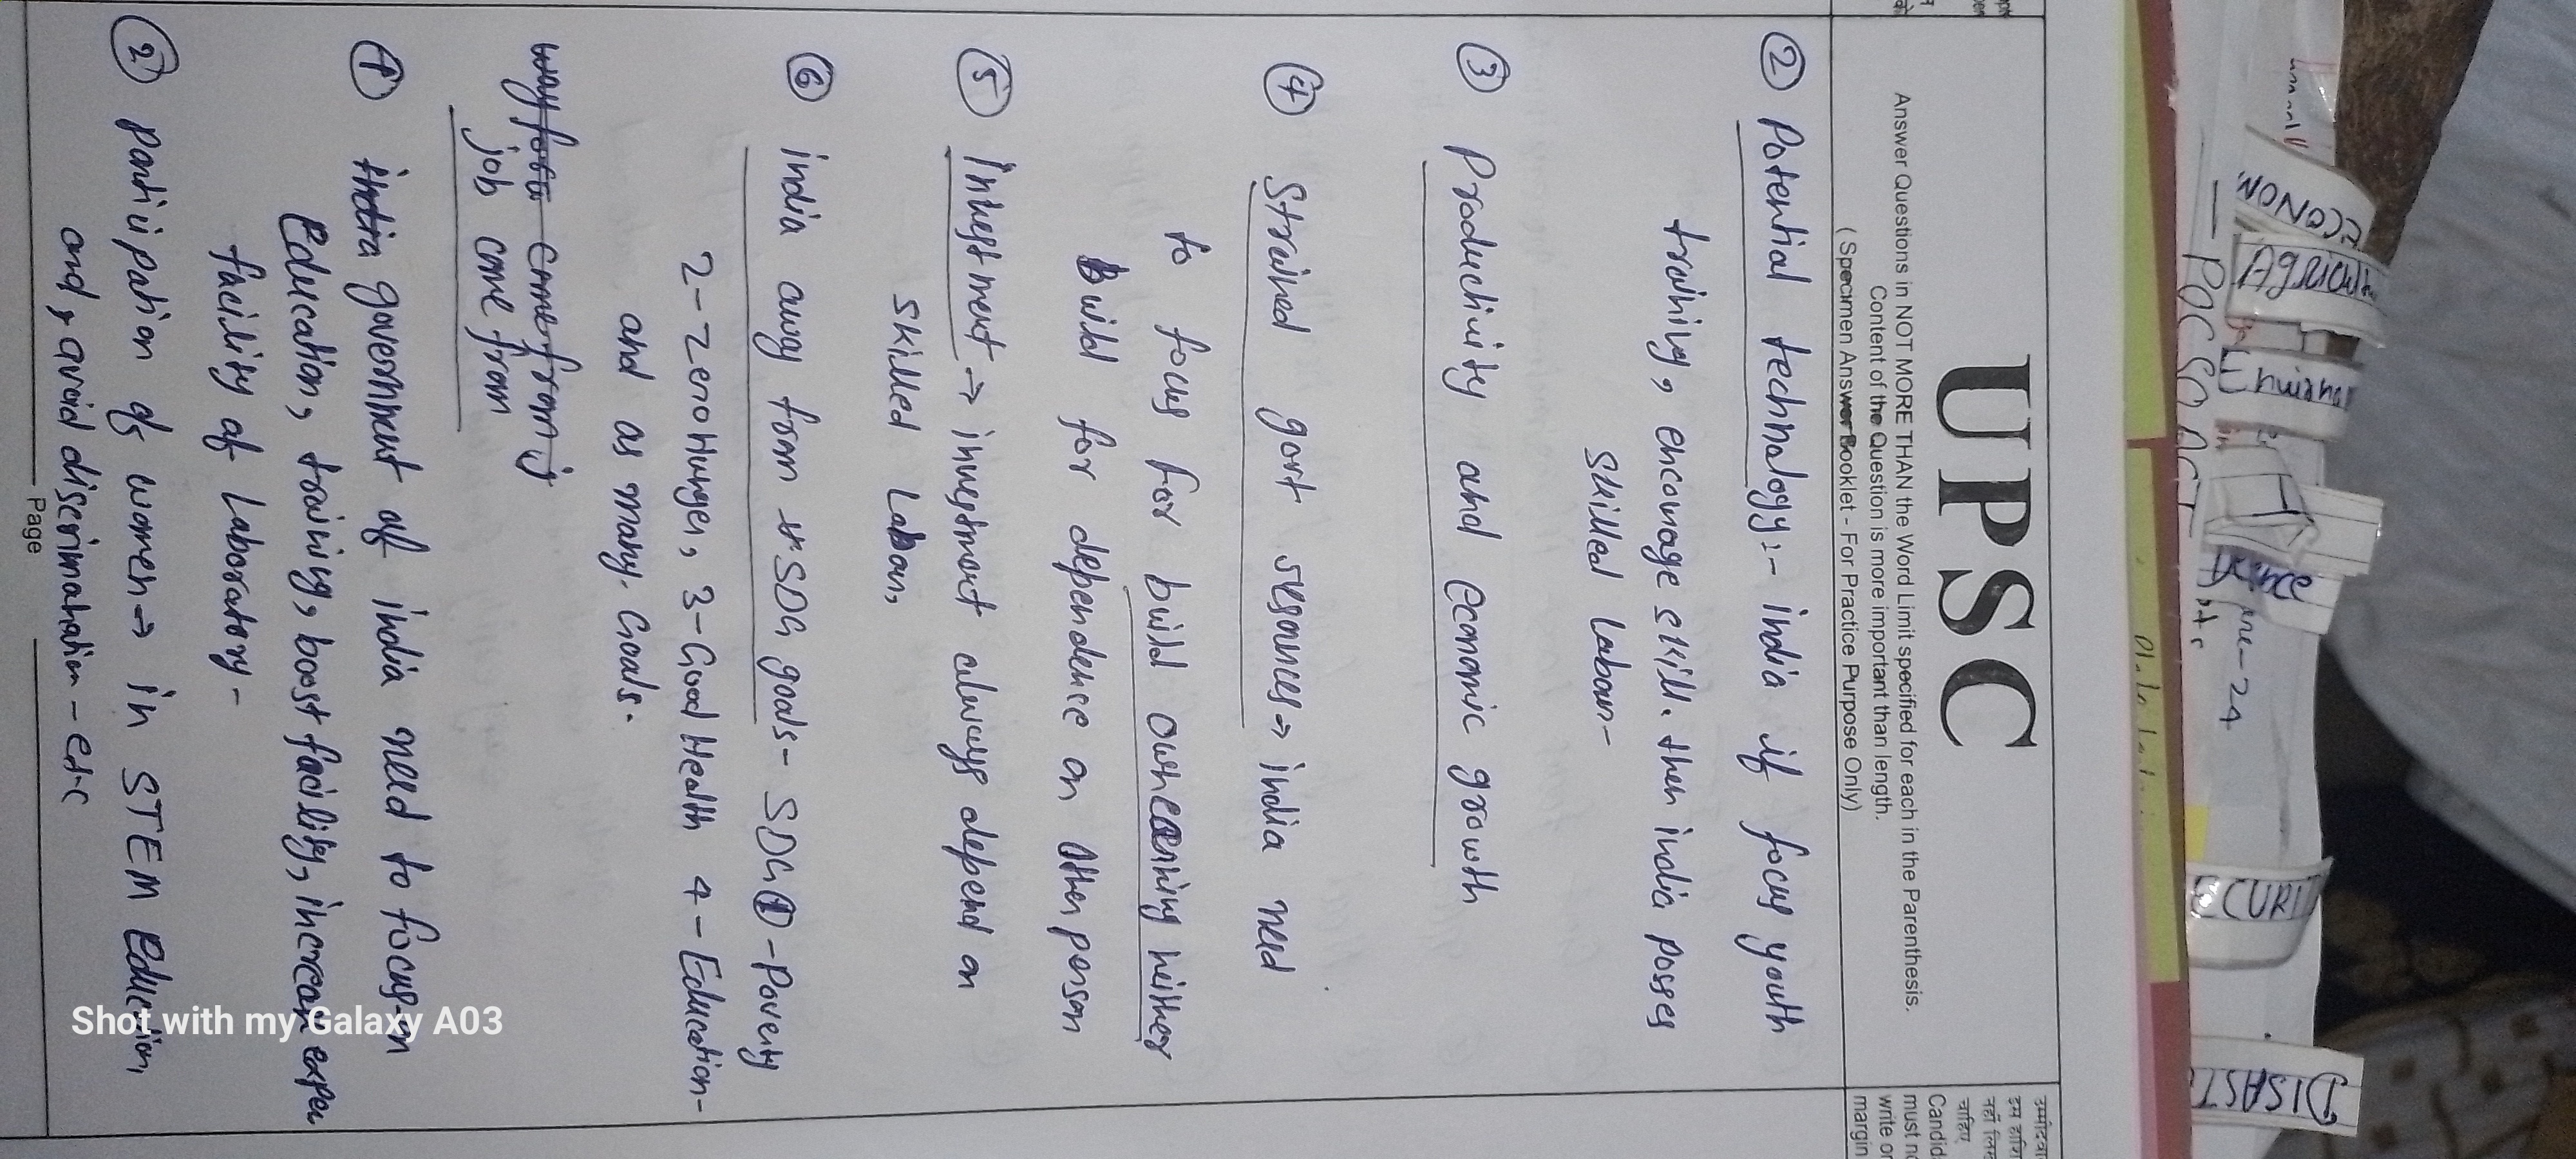 UPSC
Answer Questions in NOT MORE THAN the Word Limit specified for each in the Parenthesis.
Content of the Question is more important than length.
( Specimen Answer Booklet - For Practice Purpose Only)
उम्मीदवार
इस हाशि
नहीं लिख
चाहिए
Candid
must no
write or
margin
② Potential technology:- india if focus youth
training, encourage skill. then india posses
skilled labour-
③ Productivity and Economic growth
④ Strained govt resources → india need
to focus for build own earning neither
build for dependence on other person
⑤ Inhestment → investment always depend on
skilled Labour,
⑥ india away from SDG goals- SDG ① -Poverty
2-Zero Hunger, 3-Good Health 4-Education-
and as many. Goals.
job come from
① india government of india need to focus-on
Education, training, boost facility, increase expen
facility of Laboratory-
② participation of women → in STEM Education,
and, avoid discrimination - etc
Page
ECONOM
POCSO ACT
SECURIT
DISAST
Shot with my Galaxy A03